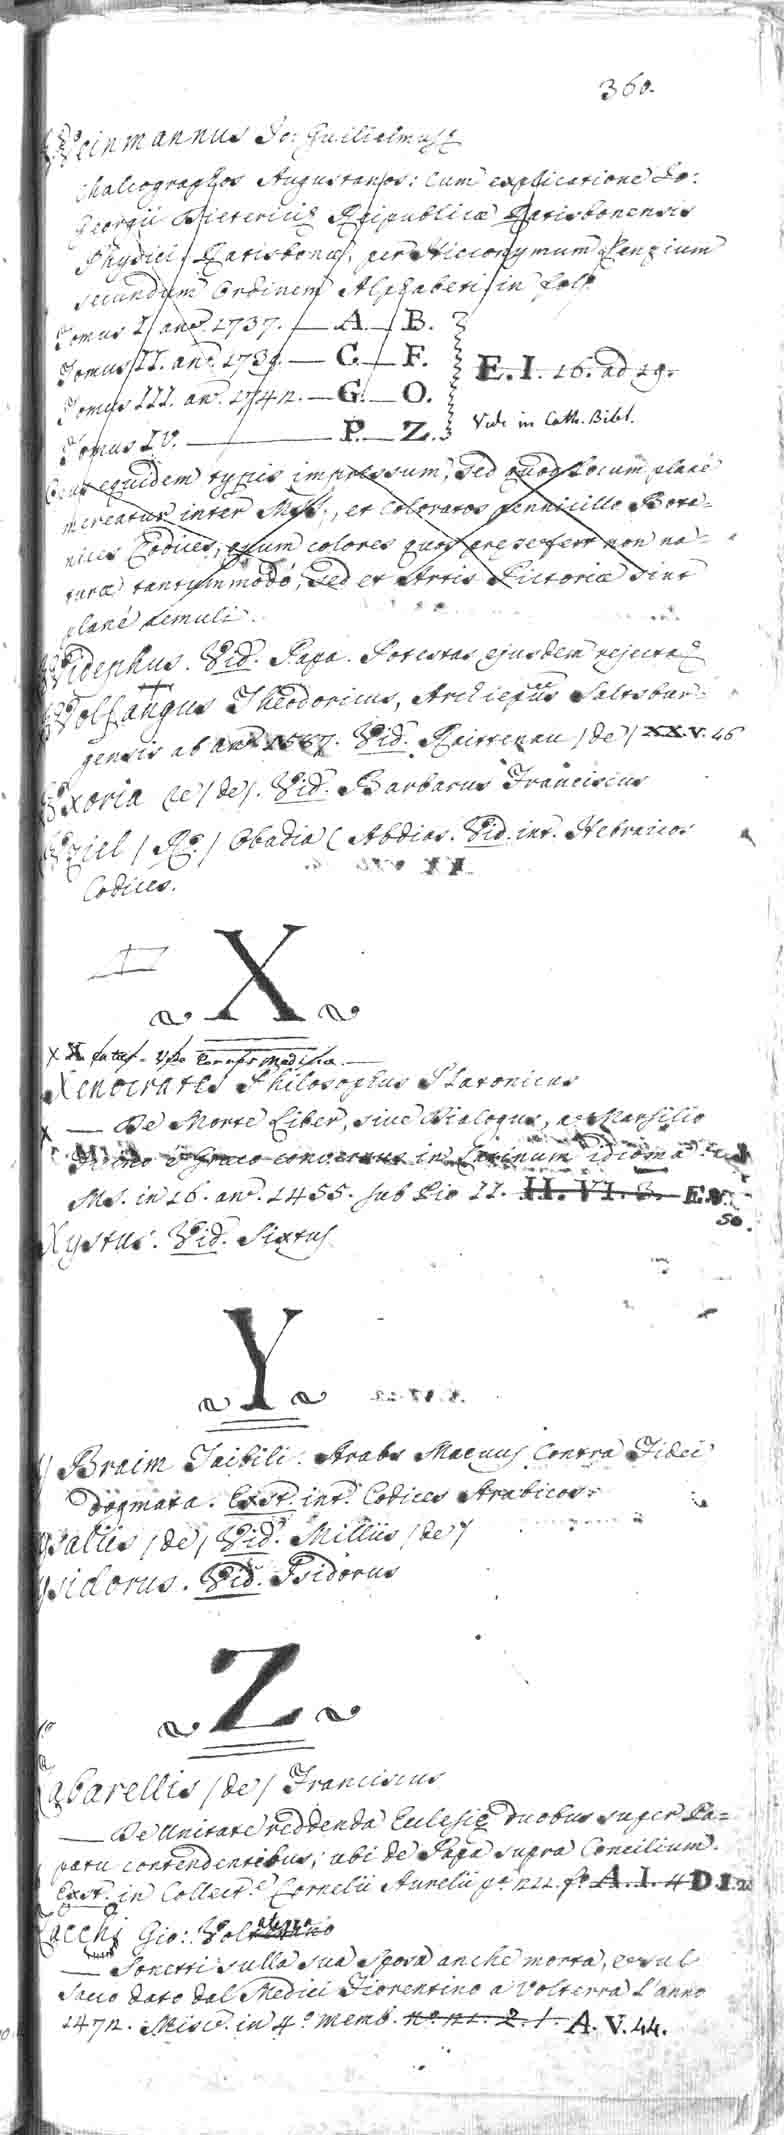 360.
Weinmannus Jo: Guilielmus
Chalcographos Augustanos: cum explicatione Jo:
Georgii Dieterici Reipublicæ Ratisbonensis
Physici. Ratisbonæ, per Hieronymum Lenzium
secundum Ordinem Alphabeti in fol.
Tomus I. anº. 1737. — A. — B.
Tomus II. anº. 1739. — C. — F.
Tomus III. anº. 1742. — G. — O.
Tomus IV. — P. — Z.
E. I. 16. ad 19.
Vide in Cath. Bibl.
Opus equidem typis impressum, sed quod locum planè
mereatur inter MSS., et coloratos pennicillo Bota=
nices Codices, quum colores quos præsefert non na=
turæ tantummodò, sed et Artis Pictoriæ sint
planè æmuli.
Widephus. Vid. Papa. Potestas ejusdem rejecta
Wolfangus Theodoricus, Archiepus Saltsbur=
gensis ab anº. 1587. Vid. Raittenau (de) XX.V. 46
Vxoria re (de). Vid. Barbarus Franciscus
Vziel (R.) Obadia (Abdias. Vid. int. Hebraicos
Codices.
X
Xenocrates Philosophus Platonicus
— De Morte Liber, sive Dialogus, a Marsilio
Ficino è Græco conversus in Latinum idioma.
MS. in 16. anº. 1455. sub Pio II. H. VI. 3. E.V.
50.
Xystus. Vid. Sixtus
Y
Y Braim Taibili. Arabs Macuus contra Fidei
dogmata. Exst. int. Codices Arabicos.
Ysaliis (de) Vid. Milliis (de)
Ysidorus. Vid. Isidorus
Z
Zabarellis (de) Franciscus
— De Unitate reddenda Eclesiæ duobus super Pa=
patu contendentibus; ubi de Papa supra Concilium.
Exst. in Collect. Cornelii Aurelii pº 122. fº A. I. 4 D.I.
Zacchi Gio: Volterrano
— Sonetti sulla sua sposa anche morta, e sul
Sacco dato dal Medici Fiorentino a Volterra l'anno
1472. Misc. in 4º memb. nº 21. 2. 1. A. V. 44.